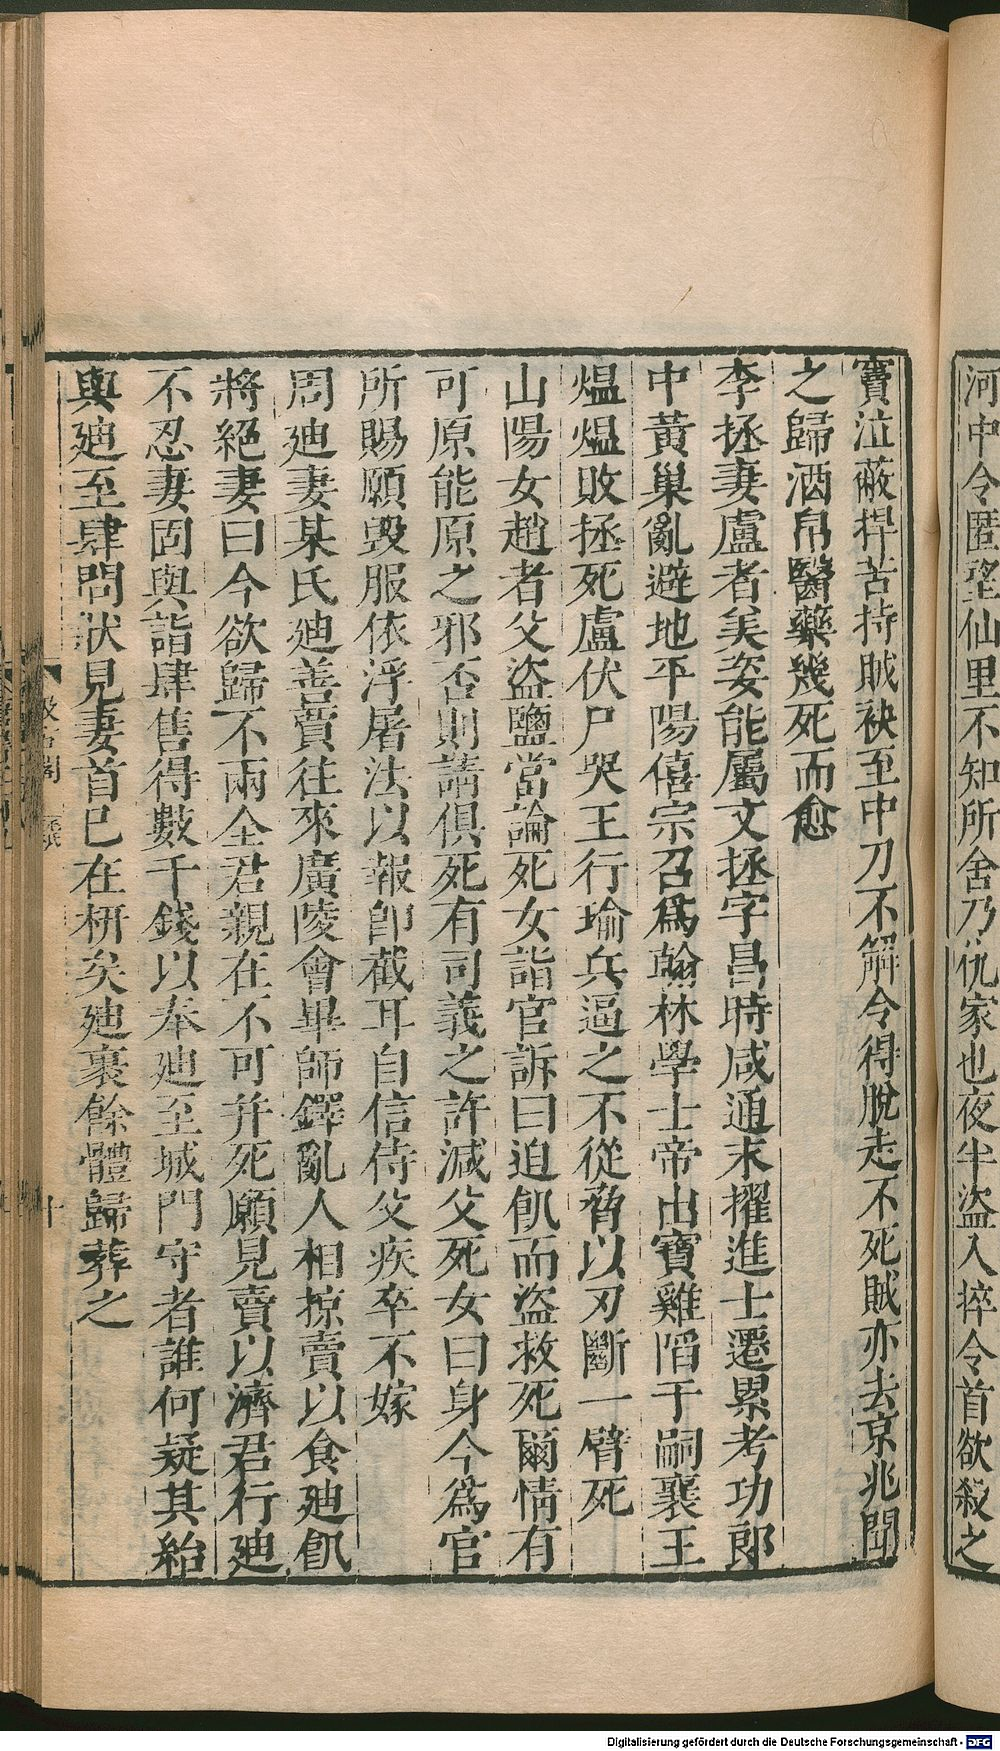 河中令匿望仙里不知所舍乃仇家也夜半盜入捽令首欲殺之
寶泣蔽捍苦持賊袂至中刀不解令得脫走不死賊亦去京兆聞
之歸酒帛醫藥幾死而愈
李拯妻盧者美姿能屬文拯字昌時咸通末擢進士遷累考功郎
中黃巢亂避地平陽僖宗召爲翰林學士帝出寶雞陷于嗣襄王
熅熅敗拯死盧伏尸哭王行瑜兵逼之不從脅以刃斷一臂死
山陽女趙者父盜鹽當論死女詣官訴曰迫飢而盜救死爾情有
可原能原之邪否則請俱死有司義之許減父死女曰身今爲官
所賜願毀服依浮屠法以報即截耳自信侍父疾卒不嫁
周廸妻某氏廸善賈往來廣陵會畢師鐸亂人相掠賣以食廸飢
將絕妻曰今欲歸不兩全君親在不可并死願見賣以濟君行廸
不忍妻固與詣肆售得數千錢以奉廸至城門守者誰何疑其紿
與廸至肆問狀見妻首已在枅矣廸裹餘體歸葬之
汲古閣
十
Digitalisierung gefördert durch die Deutsche Forschungsgemeinschaft - DFG